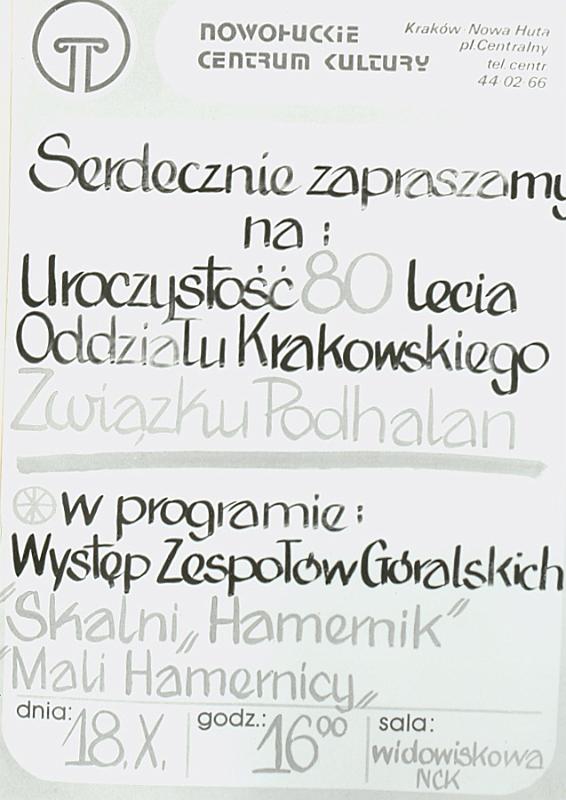 NOWOHUCKIE
CENTRUM KULTURY
Kraków - Nowa Huta
pl. Centralny
tel. centr.
44-02-66
Serdecznie zapraszamy
na :
Uroczystość 80 lecia
Oddziału Krakowskiego
Związku Podhalan
W programie :
Występ Zespołów Góralskich
"Skalni„ Hamernik"
"Mali Hamernicy„
dnia: 18.X. godz.: 16⁰⁰ sala: widowiskowa
NCK